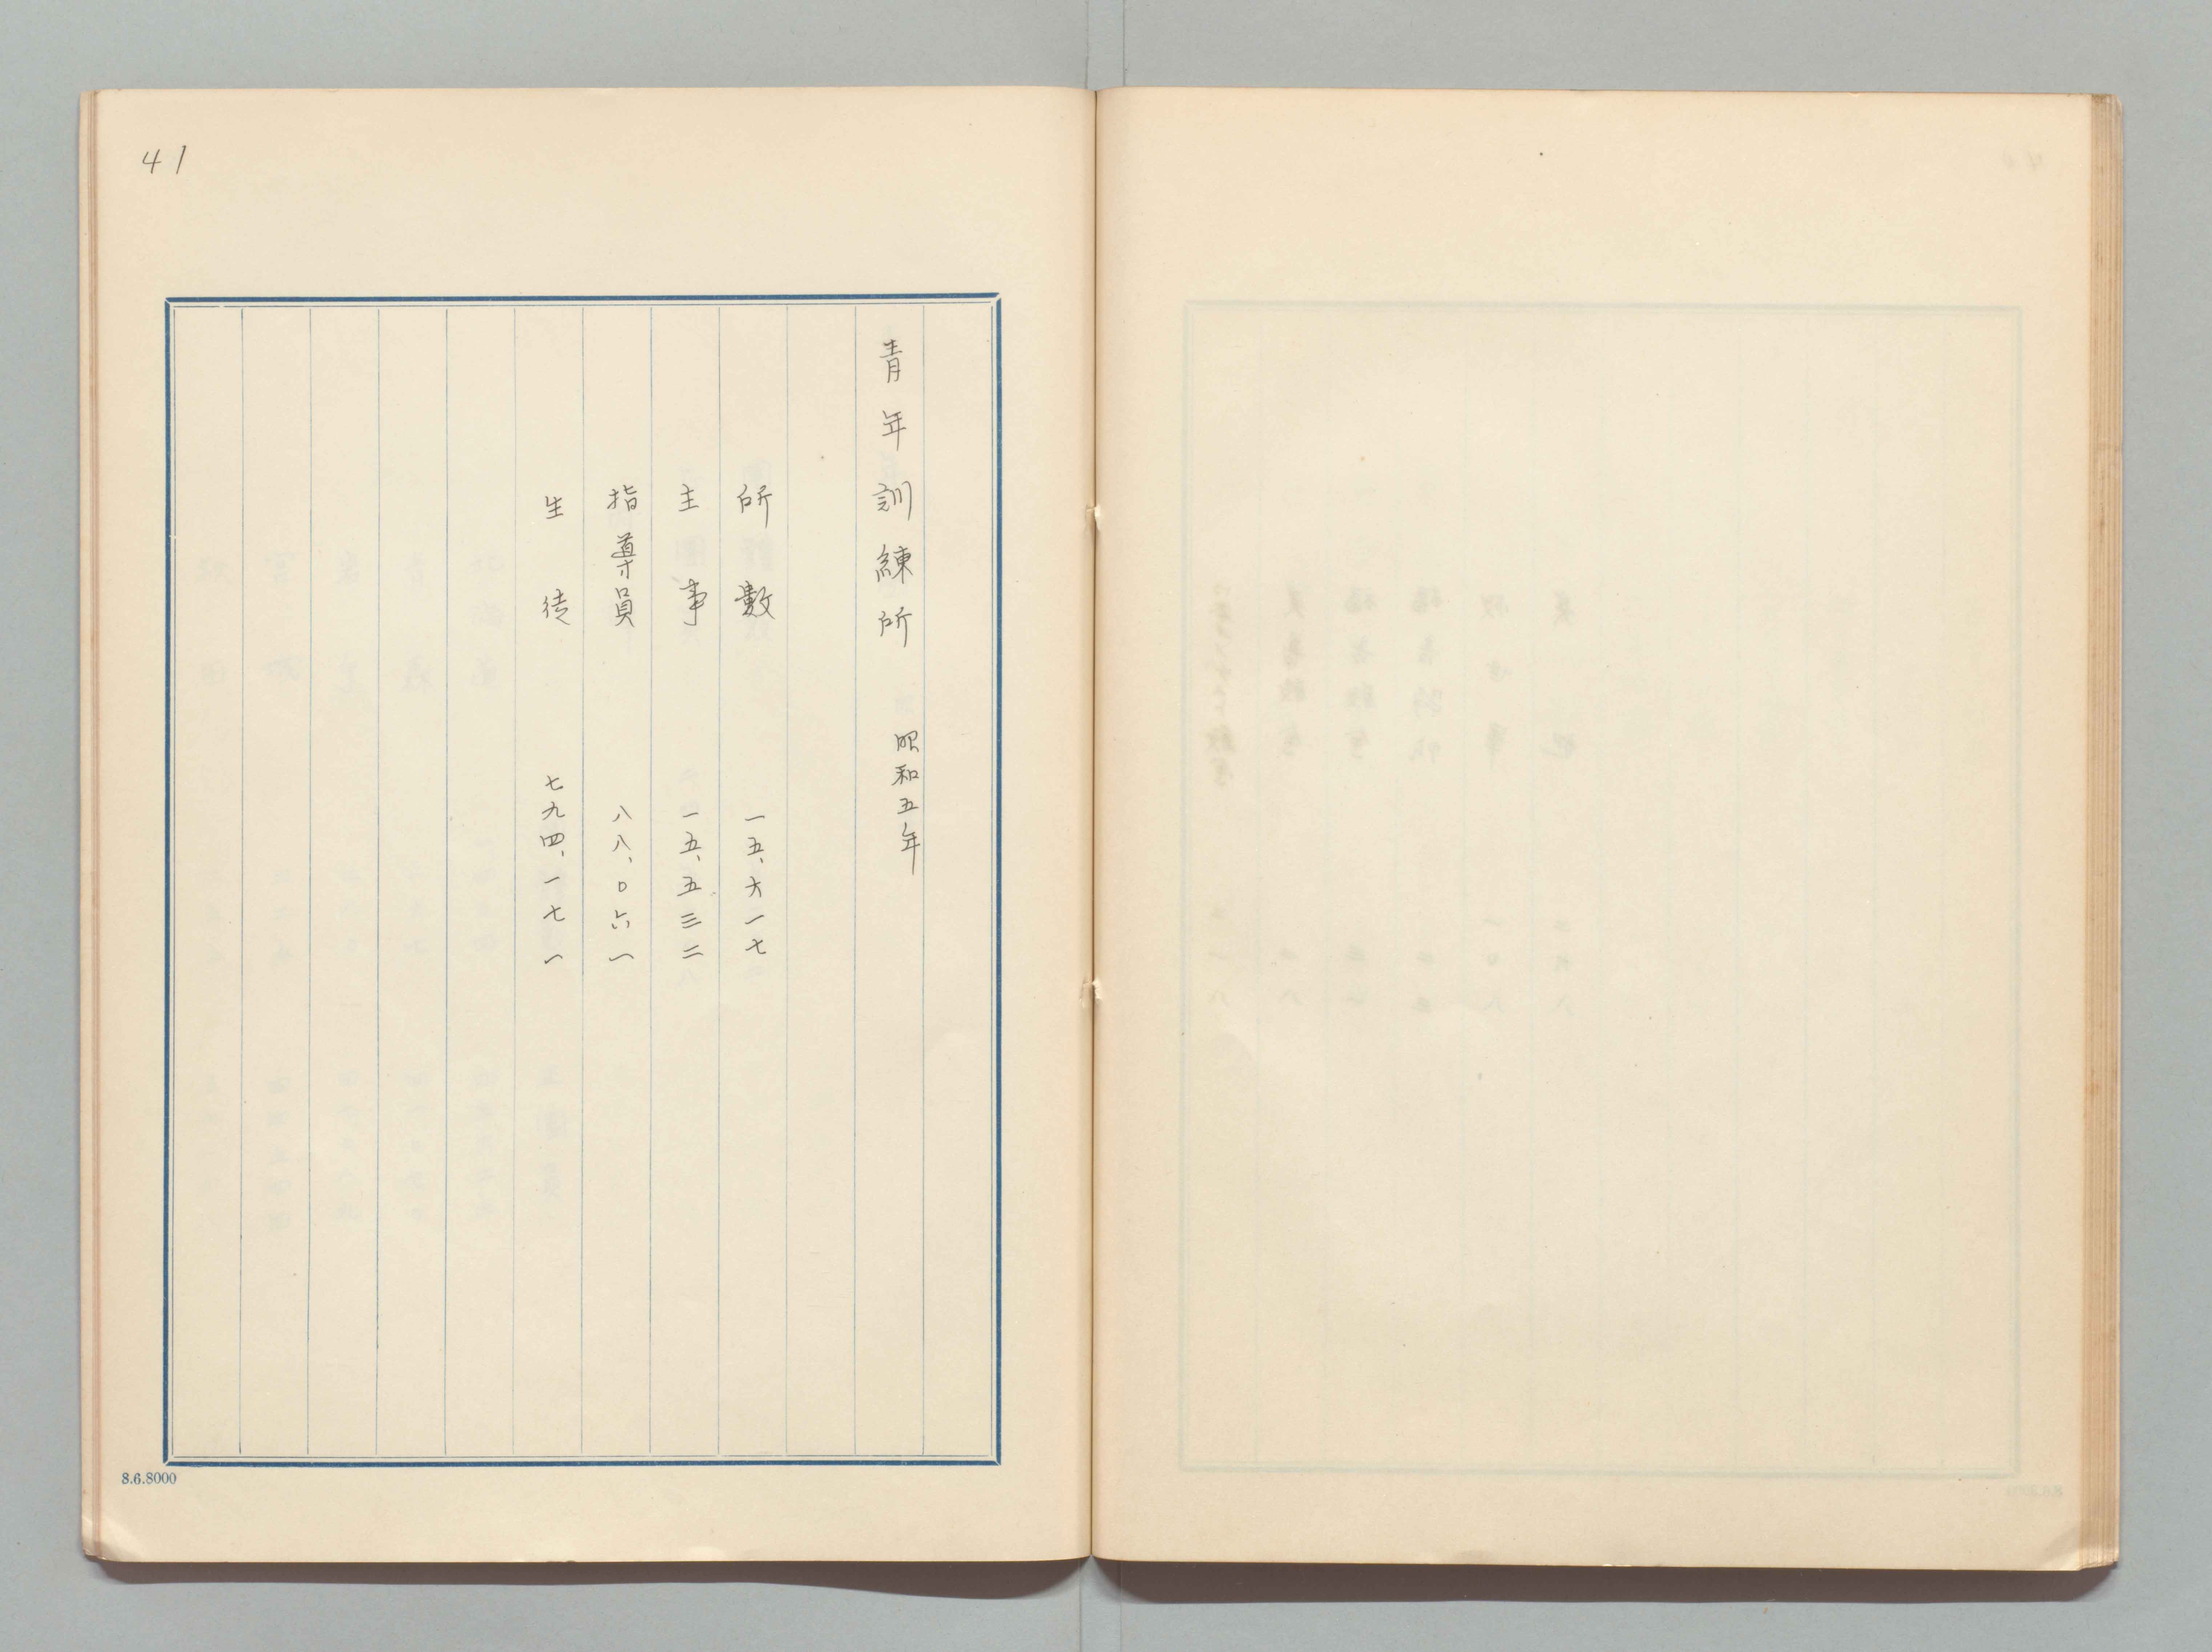 41
青年訓練所 昭和五年
所數 一五、六一七
主事 一五、五三二
指導員 八八、〇六一
生徒 七九四、一七一
8.6.8000